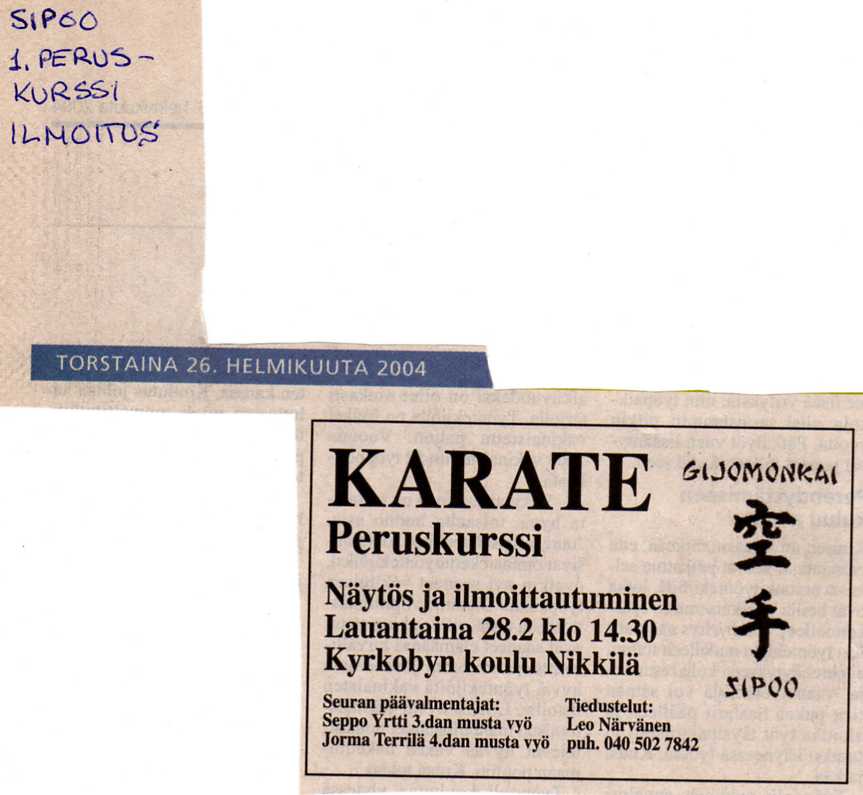 SIPOO
1. PERUS-
KURSSI
ILMOITUS
TORSTAINA 26. HELMIKUUTA 2004
KARATE
Peruskurssi
Näytös ja ilmoittautuminen
Lauantaina 28.2 klo 14.30
Kyrkobyn koulu Nikkilä
Seuran päävalmentajat:
Seppo Yrtti 3.dan musta vyö
Jorma Terrilä 4.dan musta vyö
Tiedustelut:
Leo Närvänen
puh. 040 502 7842
GIJOMONKAI
空
手
SIPOO